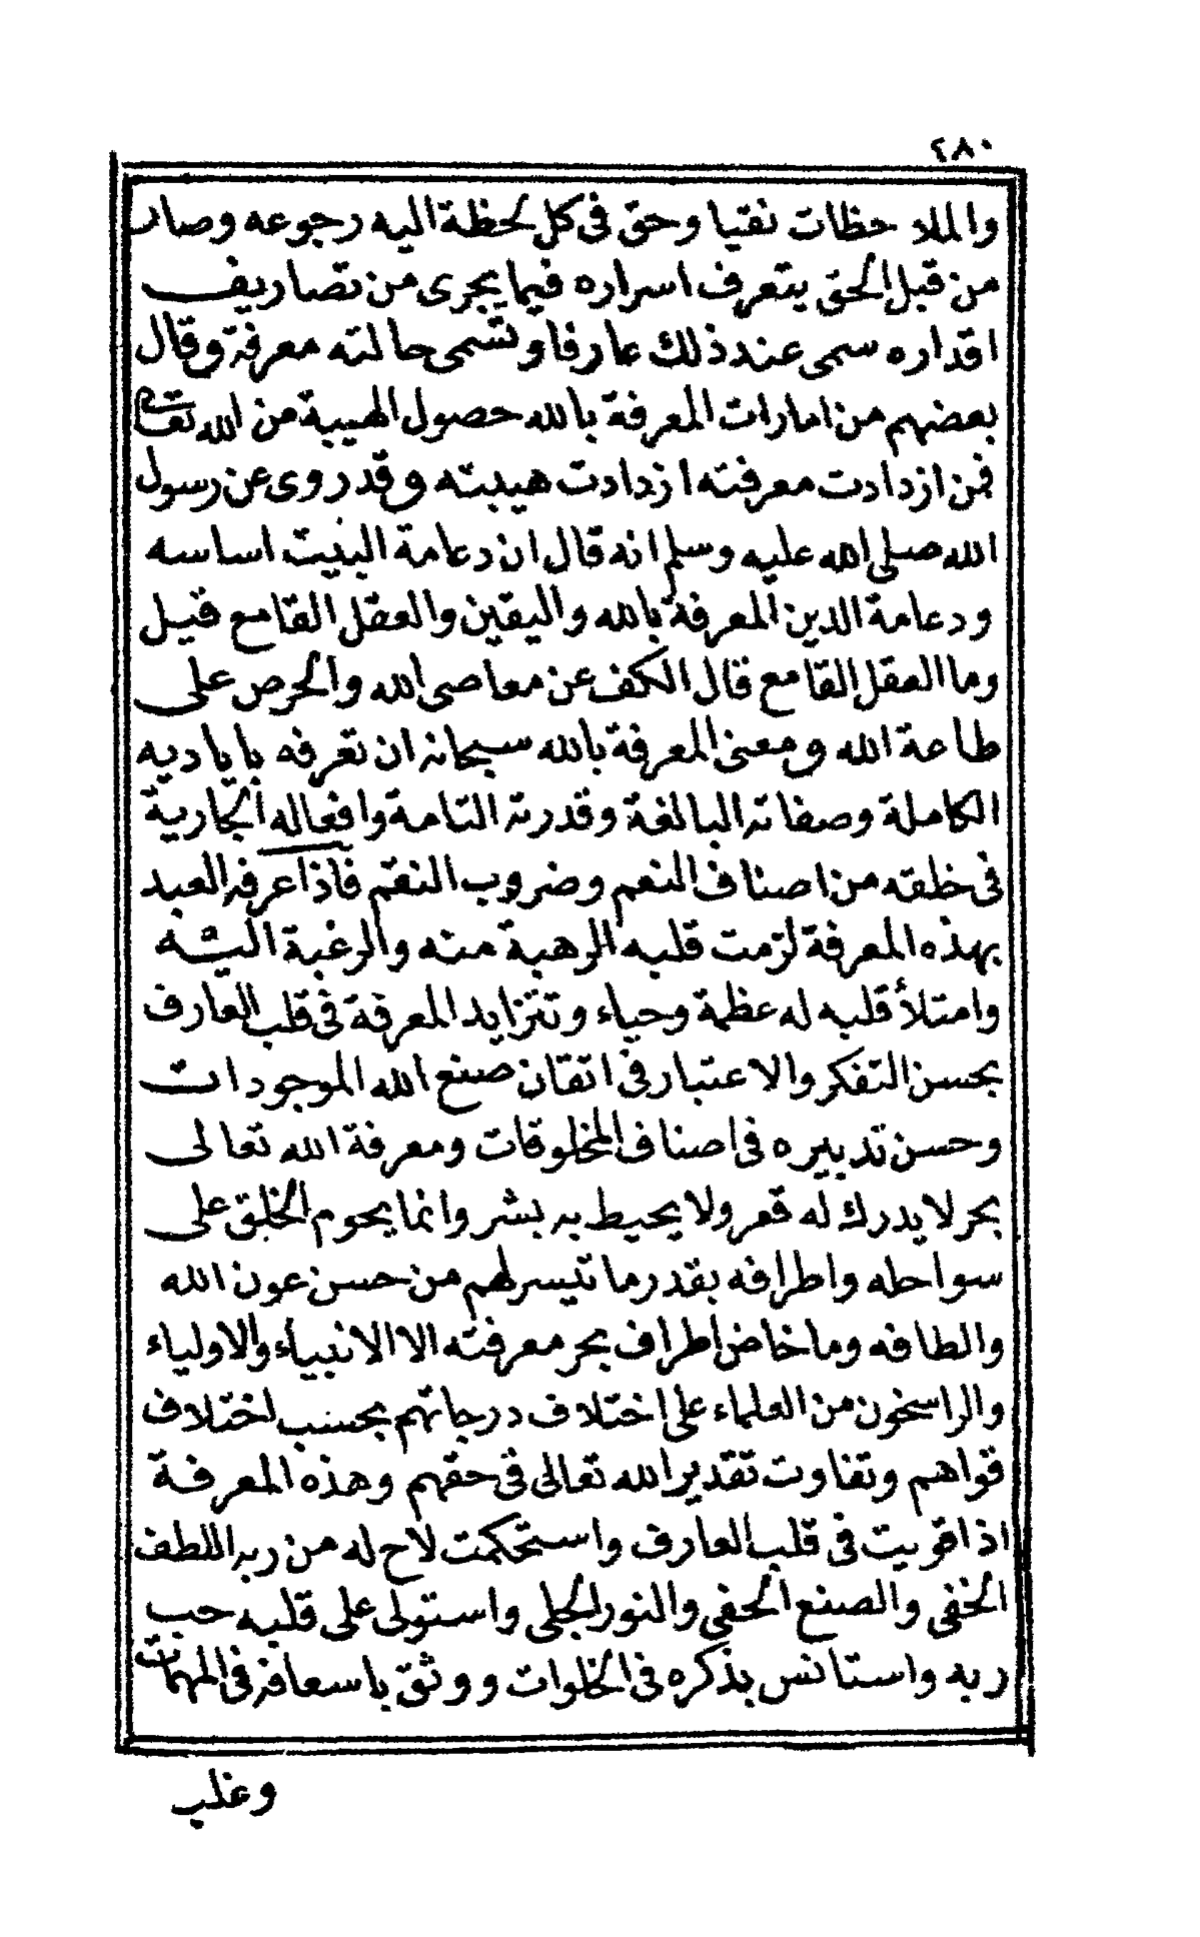 ٢٨٠
والملاحظات نقيا وحق فى كل لحظة اليه رجوعه وصار
من قبل الحق يتعرف اسراره فيما يجرى من تصاريف
اقداره سمى عند ذلك عارفا وتسمى حالته معرفة وقال
بعضهم من امارات المعرفة بالله حصول الهيبة من الله تعالى
فمن ازدادت معرفته ازدادت هيبته وقد روى عن رسول
الله صلى الله عليه وسلم انه قال ان دعامة البيت اساسه
ودعامة الدين المعرفة بالله واليقين والعقل القامع قيل
وما العقل القامع قال الكف عن معاصى الله والحرص على
طاعة الله ومعنى المعرفة بالله سبحانه ان تعرفه باياديه
الكاملة وصفاته البالغة وقدرته التامة وافعاله الجارية
فى خلقه من اصناف النعم وضروب النقم فاذا عرفه العبد
بهذه المعرفة لزمت قلبه الرهبة منه والرغبة اليه
وامتلأ قلبه له عظمة وحياء وتتزايد المعرفة فى قلب العارف
بحسن التفكر والاعتبار فى اتقان صنع الله الموجودات
وحسن تدبيره فى اصناف المخلوقات ومعرفة الله تعالى
بحر لا يدرك له قعر ولا يحيط به بشر وانما يحوم الخلق على
سواحله واطرافه بقدر ما تيسر لهم من حسن عون الله
والطافه وما خاض اطراف بحر معرفته الا الانبياء والاولياء
والراسخون من العلماء على اختلاف درجاتهم بحسب اختلاف
قواهم وتفاوت تقدير الله تعالى فى حقهم وهذه المعرفة
اذا قويت فى قلب العارف واستحكمت لاح له من ربه اللطف
الخفى والصنع الحفى والنور الجلى واستولى على قلبه حب
ربه واستانس بذكره فى الخلوات ووثق باسعافه فى المهمات
وغلب